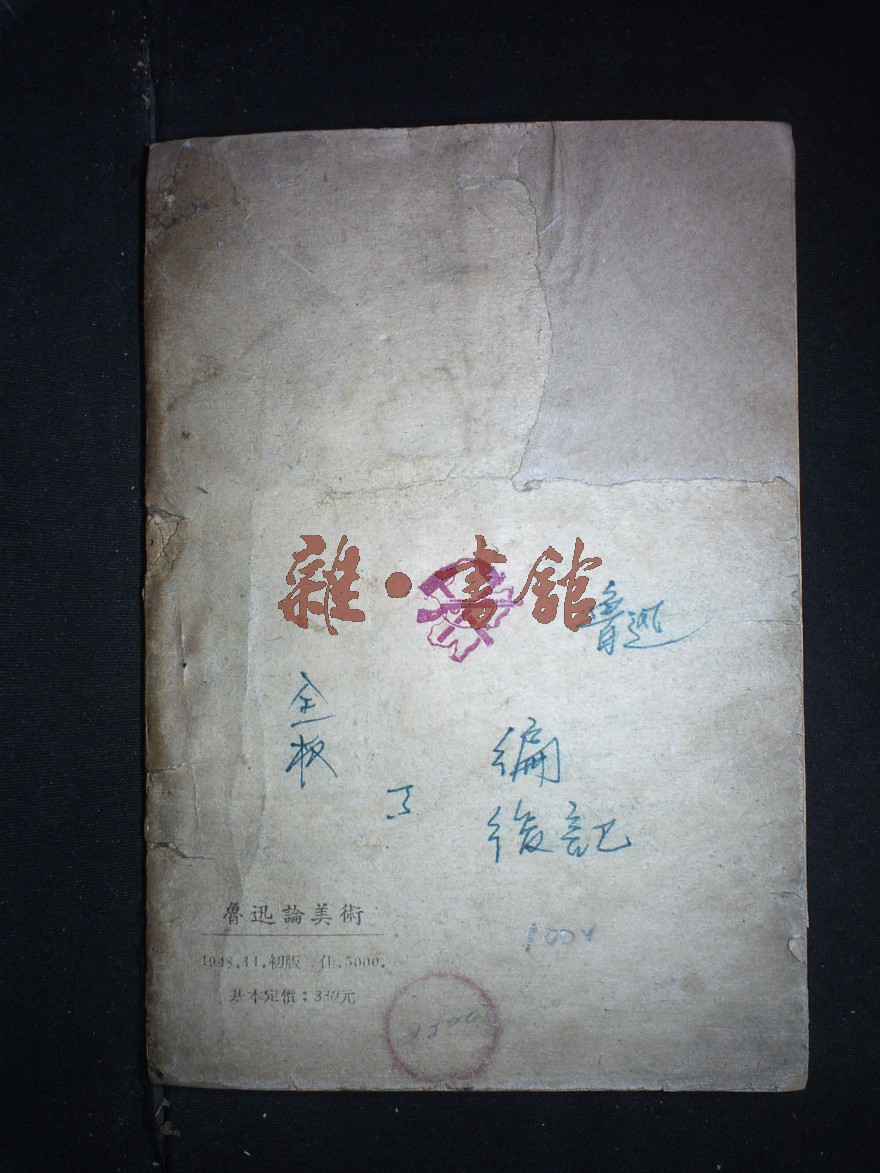 雜·書館
魯迅
全板
了
編
後記
100
魯迅論美術
1948.11.初版 佳.5000.
基本定價：330元
1300